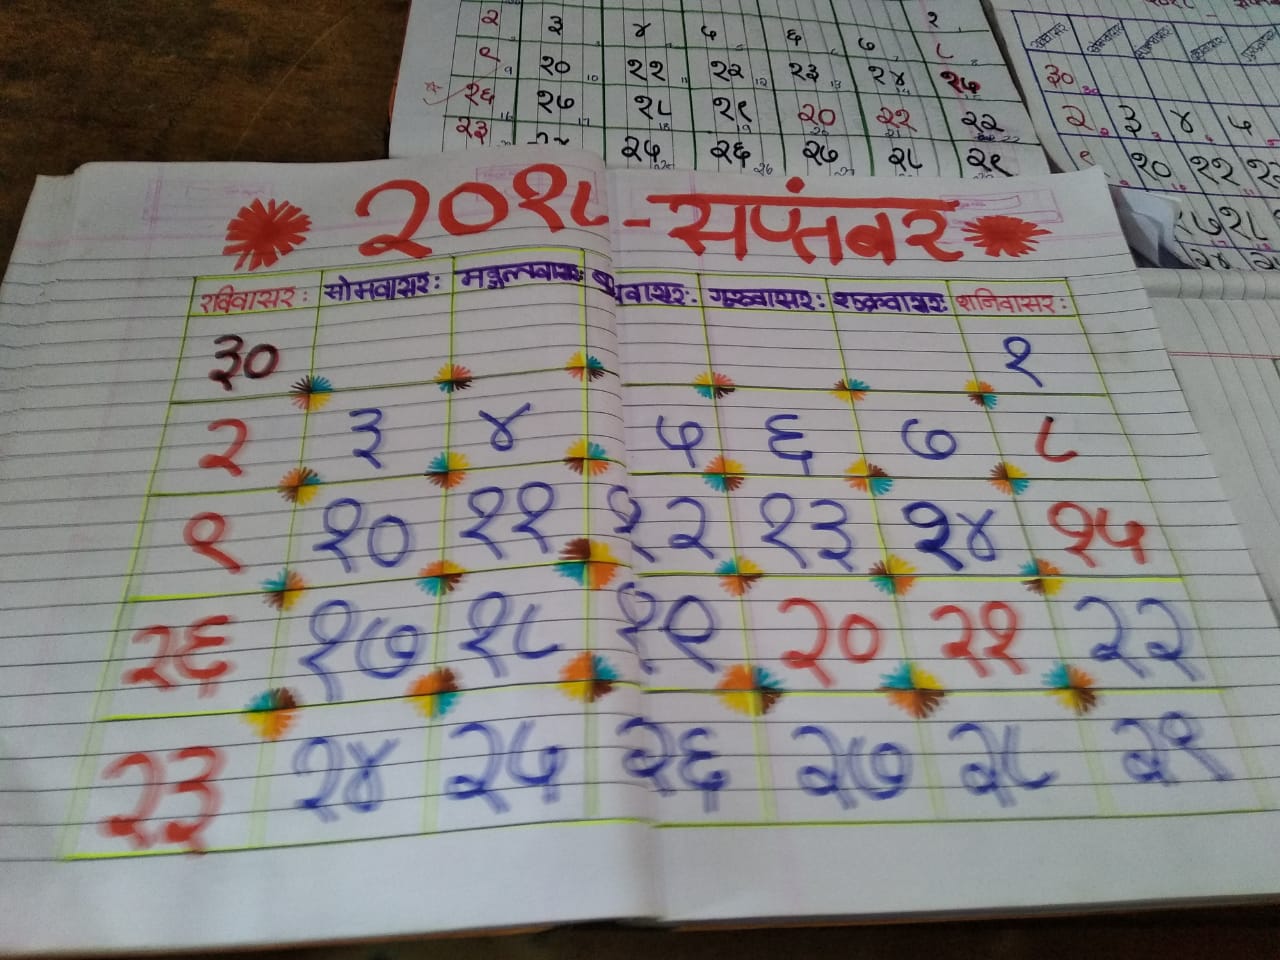 २ ३ ४ ५ ६ ७ १
९ १० ११ १२ १३ १४ ८
१६ १७ १८ १९ २० २१ १५
२३ २५ २६ २७ २८ २२
२९
३०
२ ३ ४ ५
९ १० ११ १२
१७ १८
२०१८ - सप्तंबर
रविवासरः सोमवासरः मङ्गलवासरः बुधवासरः गुरुवासरः शुक्रवासरः शनिवासरः
३० १
२ ३ ४ ५ ६ ७ ८
९ १० ११ १२ १३ १४ १५
१६ १७ १८ १९ २० २१ २२
२३ २४ २५ २६ २७ २८ २९